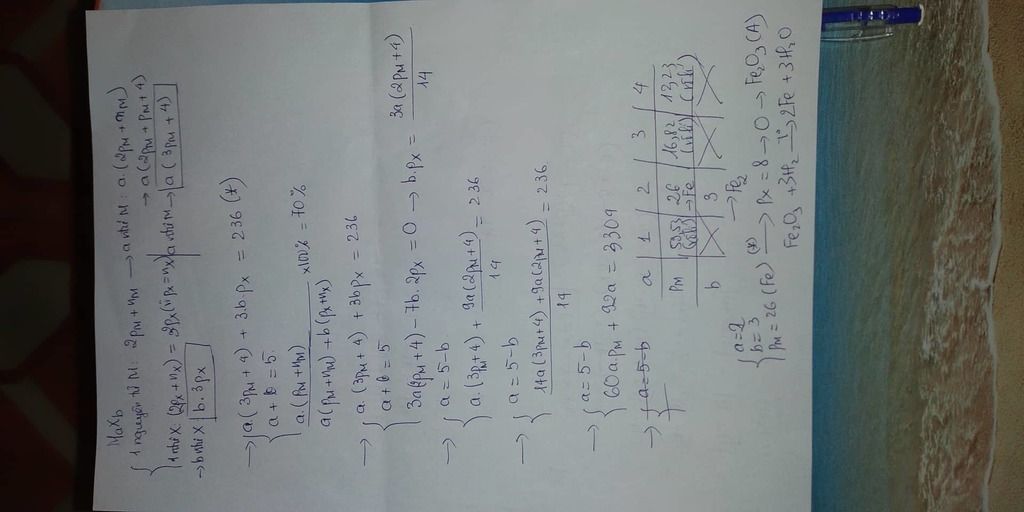 MaXb
{ 1 nguyên tử M: 2pM + nM → a nhỏ M: a.(2pM + nM)
→ a(2pM + pM + 4)
1 nhỏ X: (2pX + nX) = 3pX (vì pX = nX) a nhỏ M → a(3pM + 4)
→ b nhỏ X b.3pX
→ { a(3pM + 4) + 3.b.pX = 236 (*)
a + b = 5
a.(pM + nM) / a(pM + nM) + b(pX + nX) × 100% = 70%
→ { a.(3pM + 4) + 3bpX = 236
a + b = 5
3a(2pM + 4) - 7b.2pX = 0 → b.pX = 3a(2pM + 4) / 14
→ { a = 5 - b
a.(3pM + 4) + 9a(2pM + 4) / 14 = 236
→ { a = 5 - b
14a(3pM + 4) + 9a(2pM + 4) / 14 = 236
→ { a = 5 - b
60apM + 92a = 3304
→ { a = 5 - b
a | 1 | 2 | 3 | 4
pM | 53,53 (loại) | 26 → Fe | 16,82 (loại) | 12,23 (loại)
b | X | 3 | X | X
→ Fe2
{ a = 2
b = 3
pM = 26 (Fe) (*) → pX = 8 → O → Fe2O3 (A)
Fe2O3 + 3H2 t° → 2Fe + 3H2O